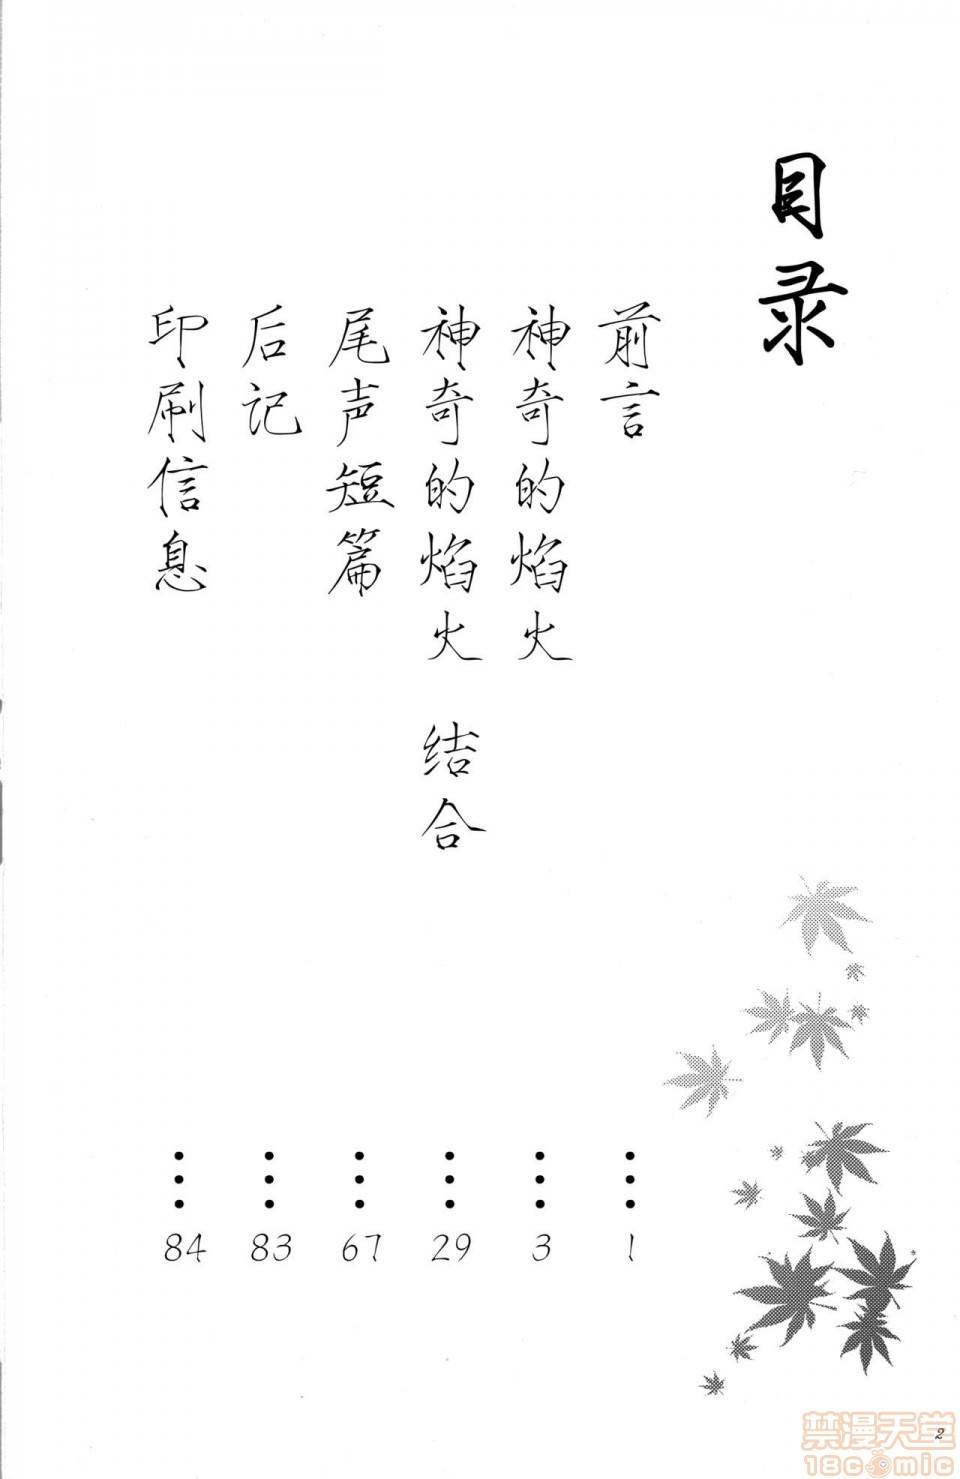 目录
前言 ⋮ 1
神奇的焰火 ⋮ 3
神奇的焰火 结合 ⋮ 29
尾声短篇 ⋮ 67
后记 ⋮ 83
印刷信息 ⋮ 84
2
禁漫天堂
18comic